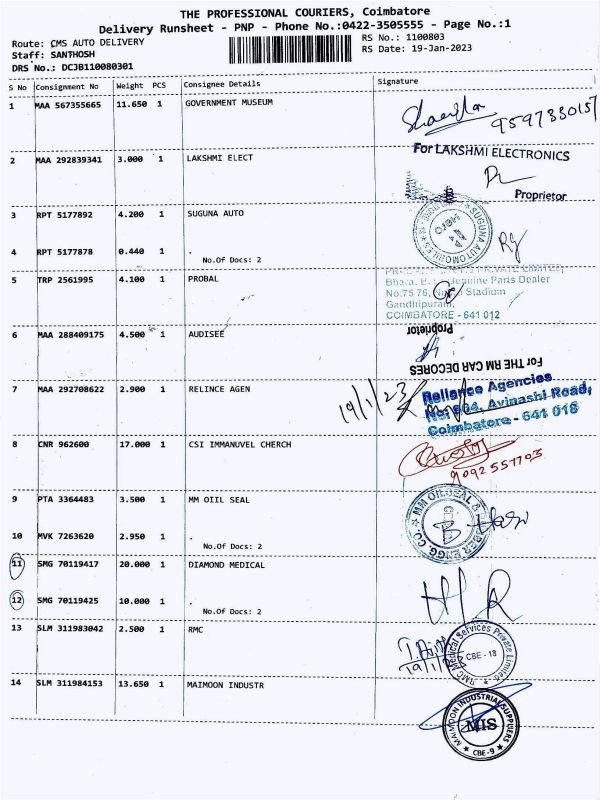 THE PROFESSIONAL COURIERS, Coimbatore
Delivery Runsheet - PNP - Phone No.:0422-3505555 - Page No.:1
Route: CMS AUTO DELIVERY
RS No.: 1100803
Staff: SANTHOSH
RS Date: 19-Jan-2023
DRS No.: DCJB110080301
S No Consignment No Weight PCS Consignee Details Signature
1 MAA 567355665 11.650 1 GOVERNMENT MUSEUM
9597330157
2 MAA 292839341 3.000 1 LAKSHMI ELECT
For LAKSHMI ELECTRONICS
Proprietor
3 RPT 5177892 4.200 1 SUGUNA AUTO
SUGUNA AUTOMOBILES
4 RPT 5177878 0.440 1 .
No.Of Docs: 2
5 TRP 2561995 4.100 1 PROBAL
PRIVATE LIMITED
Genuine Parts Dealer
No.75 76, Stadium
Gandhipuram,
COIMBATORE - 641 012
6 MAA 288409175 4.500 1 AUDISEE
Proprietor
For THE RM CAR DECORES
7 MAA 292708622 2.900 1 RELINCE AGEN
19/1/23
Reliance Agencies
No: 604, Avinashi Road,
Coimbatore - 641 018
8 CNR 962600 17.000 1 CSI IMMANUVEL CHERCH
9092557703
9 PTA 3364483 3.500 1 MM OIIL SEAL
MM OILSEAL & RUBBER ENGG. CO.
10 MVK 7263620 2.950 1 .
No.Of Docs: 2
11 SMG 70119417 20.000 1 DIAMOND MEDICAL
12 SMG 70119425 10.000 1 .
No.Of Docs: 2
13 SLM 311983042 2.500 1 RMC
RMC Medical Services Private Limited
CBE - 18
14 SLM 311984153 13.650 1 MAIMOON INDUSTR
MAIMOON INDUSTRIAL SUPPLIERS
MIS
CBE-9